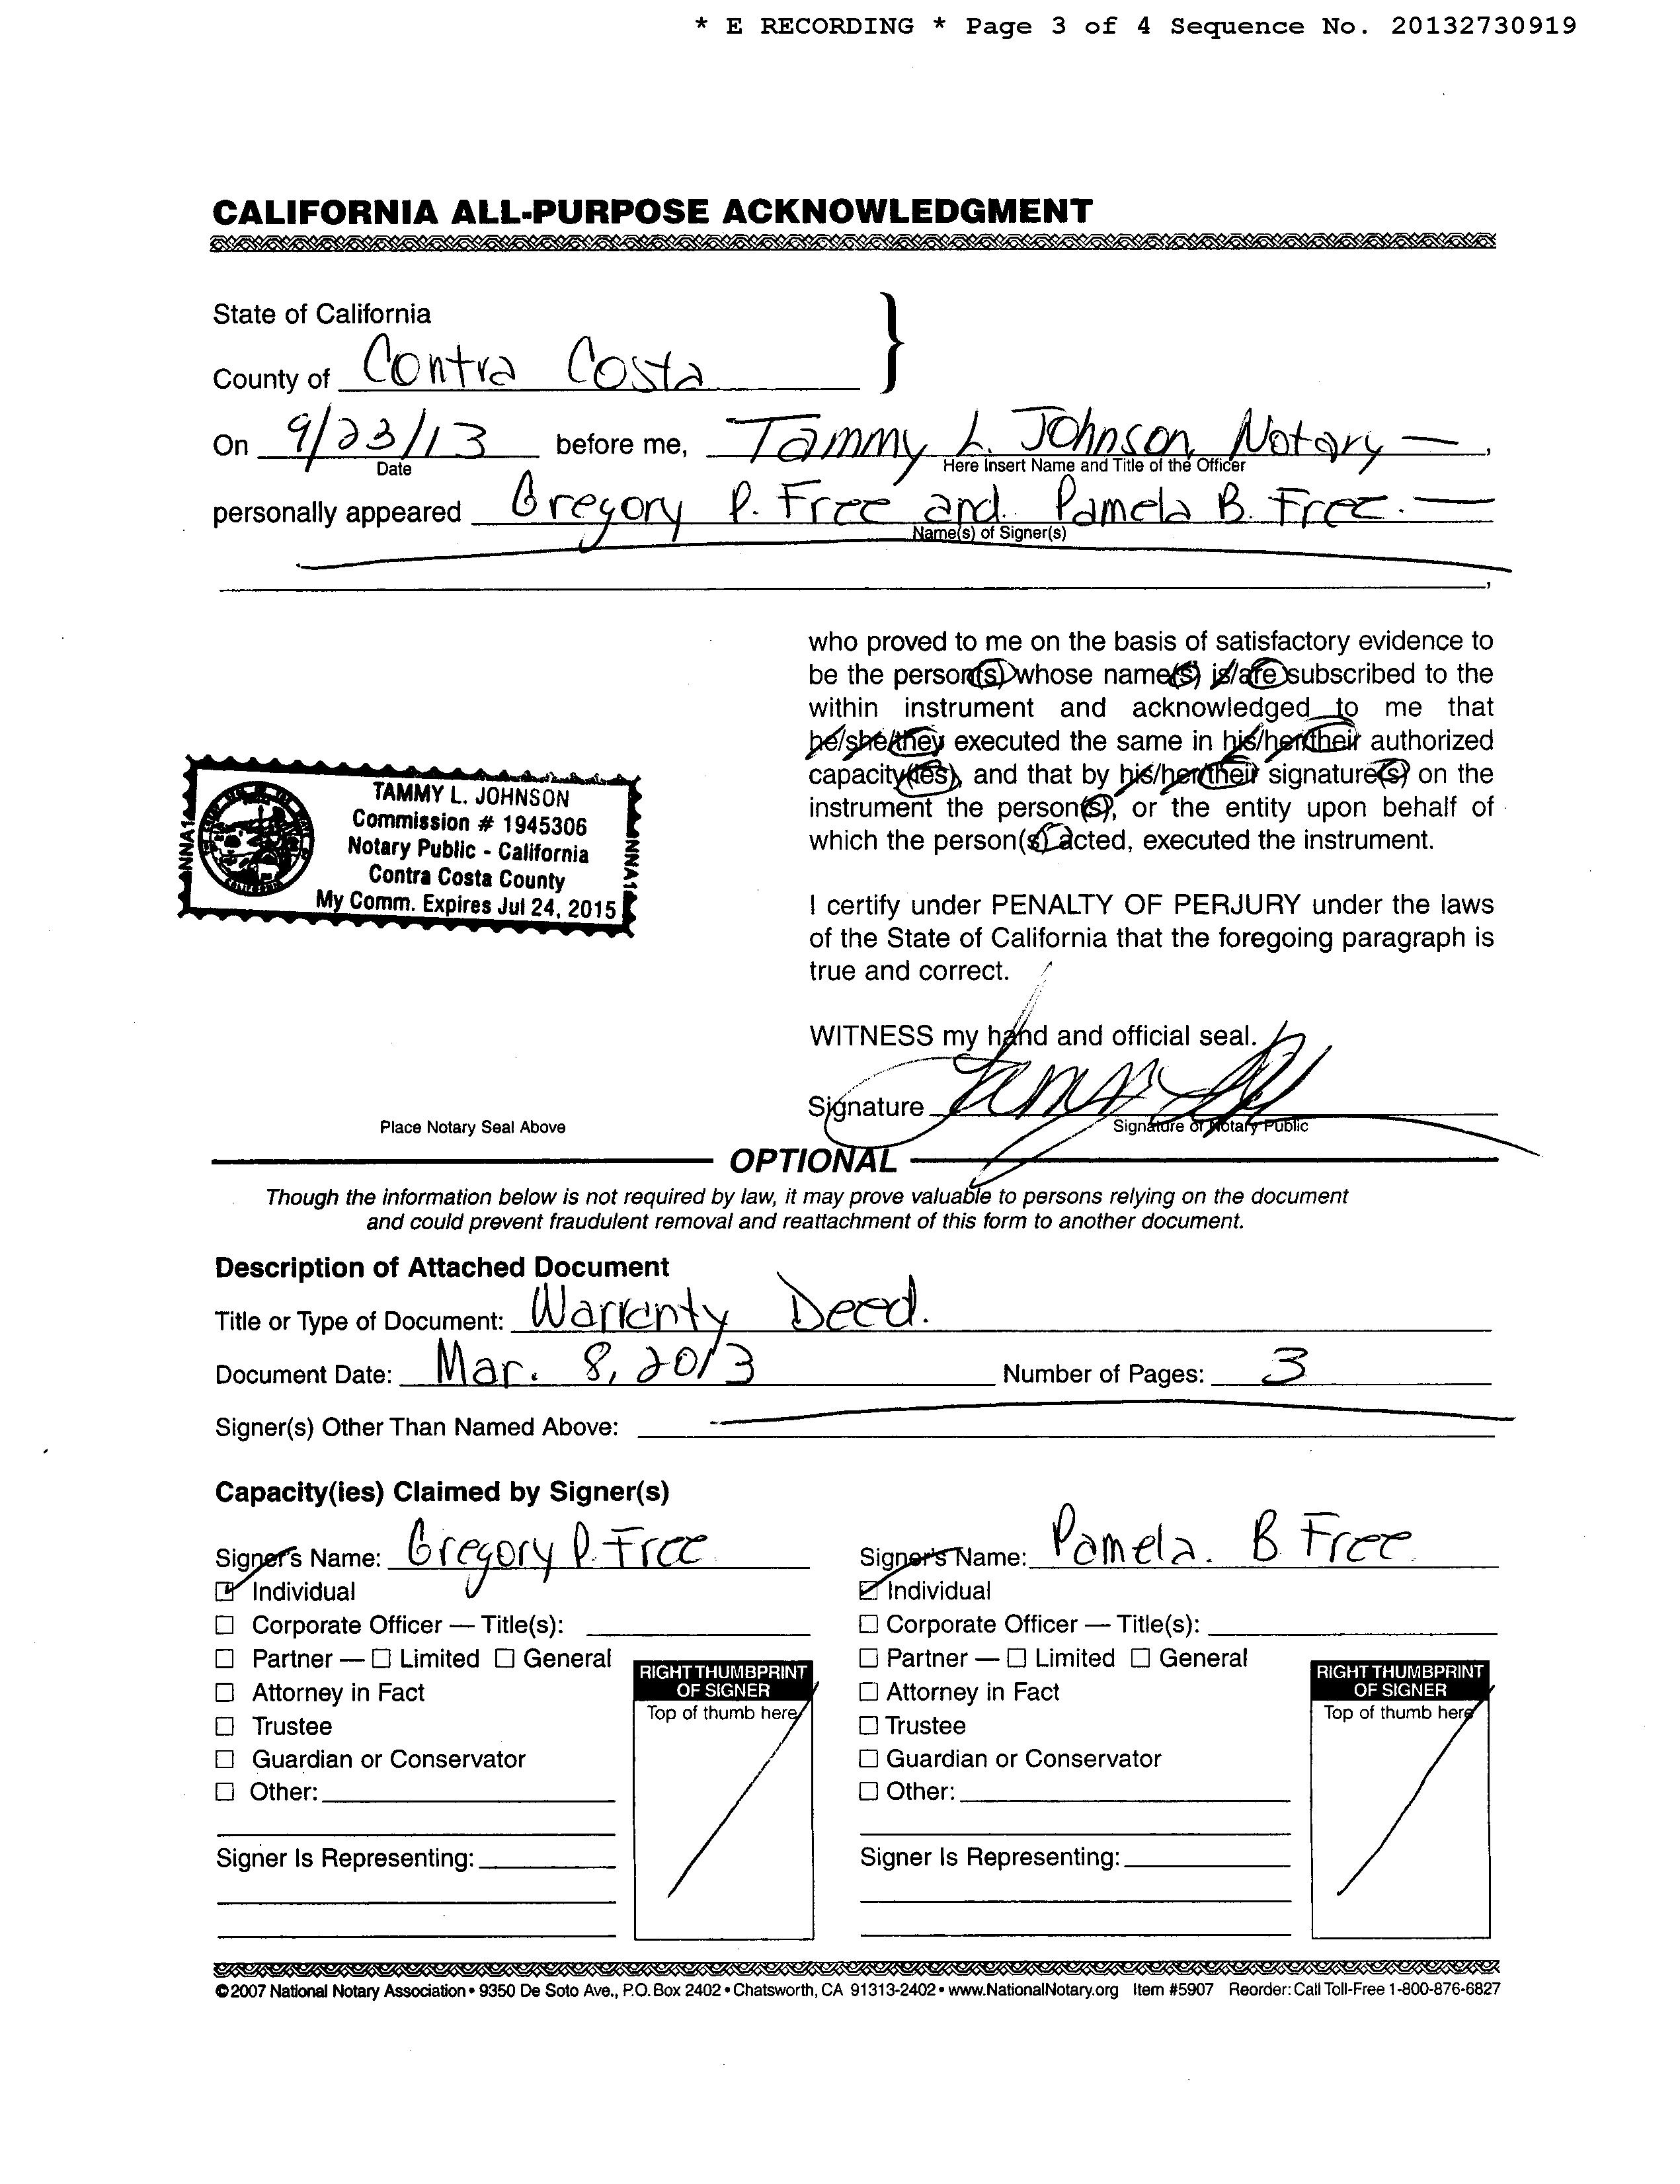 * E RECORDING * Page 3 of 4 Sequence No. 20132730919
CALIFORNIA ALL-PURPOSE ACKNOWLEDGMENT
State of California
County of Contra Costa }
On 9/23/13 before me, Tammy L. Johnson, Notary — ,
Date Here Insert Name and Title of the Officer
personally appeared Gregory P. Free and Pamela B. Free. —
Name(s) of Signer(s)
,
who proved to me on the basis of satisfactory evidence to
be the person(s) whose name(s) is/are subscribed to the
within instrument and acknowledged to me that
he/she/they executed the same in his/her/their authorized
capacity(ies), and that by his/her/their signature(s) on the
instrument the person(s), or the entity upon behalf of
which the person(s) acted, executed the instrument.
NNA1 TAMMY L. JOHNSON NNA1
Commission # 1945306
Notary Public - California
Contra Costa County
My Comm. Expires Jul 24, 2015
I certify under PENALTY OF PERJURY under the laws
of the State of California that the foregoing paragraph is
true and correct.
WITNESS my hand and official seal.
Signature
Place Notary Seal Above Signature of Notary Public
OPTIONAL
Though the information below is not required by law, it may prove valuable to persons relying on the document
and could prevent fraudulent removal and reattachment of this form to another document.
Description of Attached Document
Title or Type of Document: Warranty Deed.
Document Date: Mar. 8, 2013 Number of Pages: 3
Signer(s) Other Than Named Above:
Capacity(ies) Claimed by Signer(s)
Signer's Name: Gregory P. Free
☑ Individual
☐ Corporate Officer — Title(s):
☐ Partner — ☐ Limited ☐ General
☐ Attorney in Fact
☐ Trustee
☐ Guardian or Conservator
☐ Other:
Signer Is Representing:
RIGHT THUMBPRINT
OF SIGNER
Top of thumb here
Signer's Name: Pamela. B Free.
☑ Individual
☐ Corporate Officer — Title(s):
☐ Partner — ☐ Limited ☐ General
☐ Attorney in Fact
☐ Trustee
☐ Guardian or Conservator
☐ Other:
Signer Is Representing:
RIGHT THUMBPRINT
OF SIGNER
Top of thumb here
©2007 National Notary Association • 9350 De Soto Ave., P.O. Box 2402 • Chatsworth, CA 91313-2402 • www.NationalNotary.org Item #5907 Reorder: Call Toll-Free 1-800-876-6827